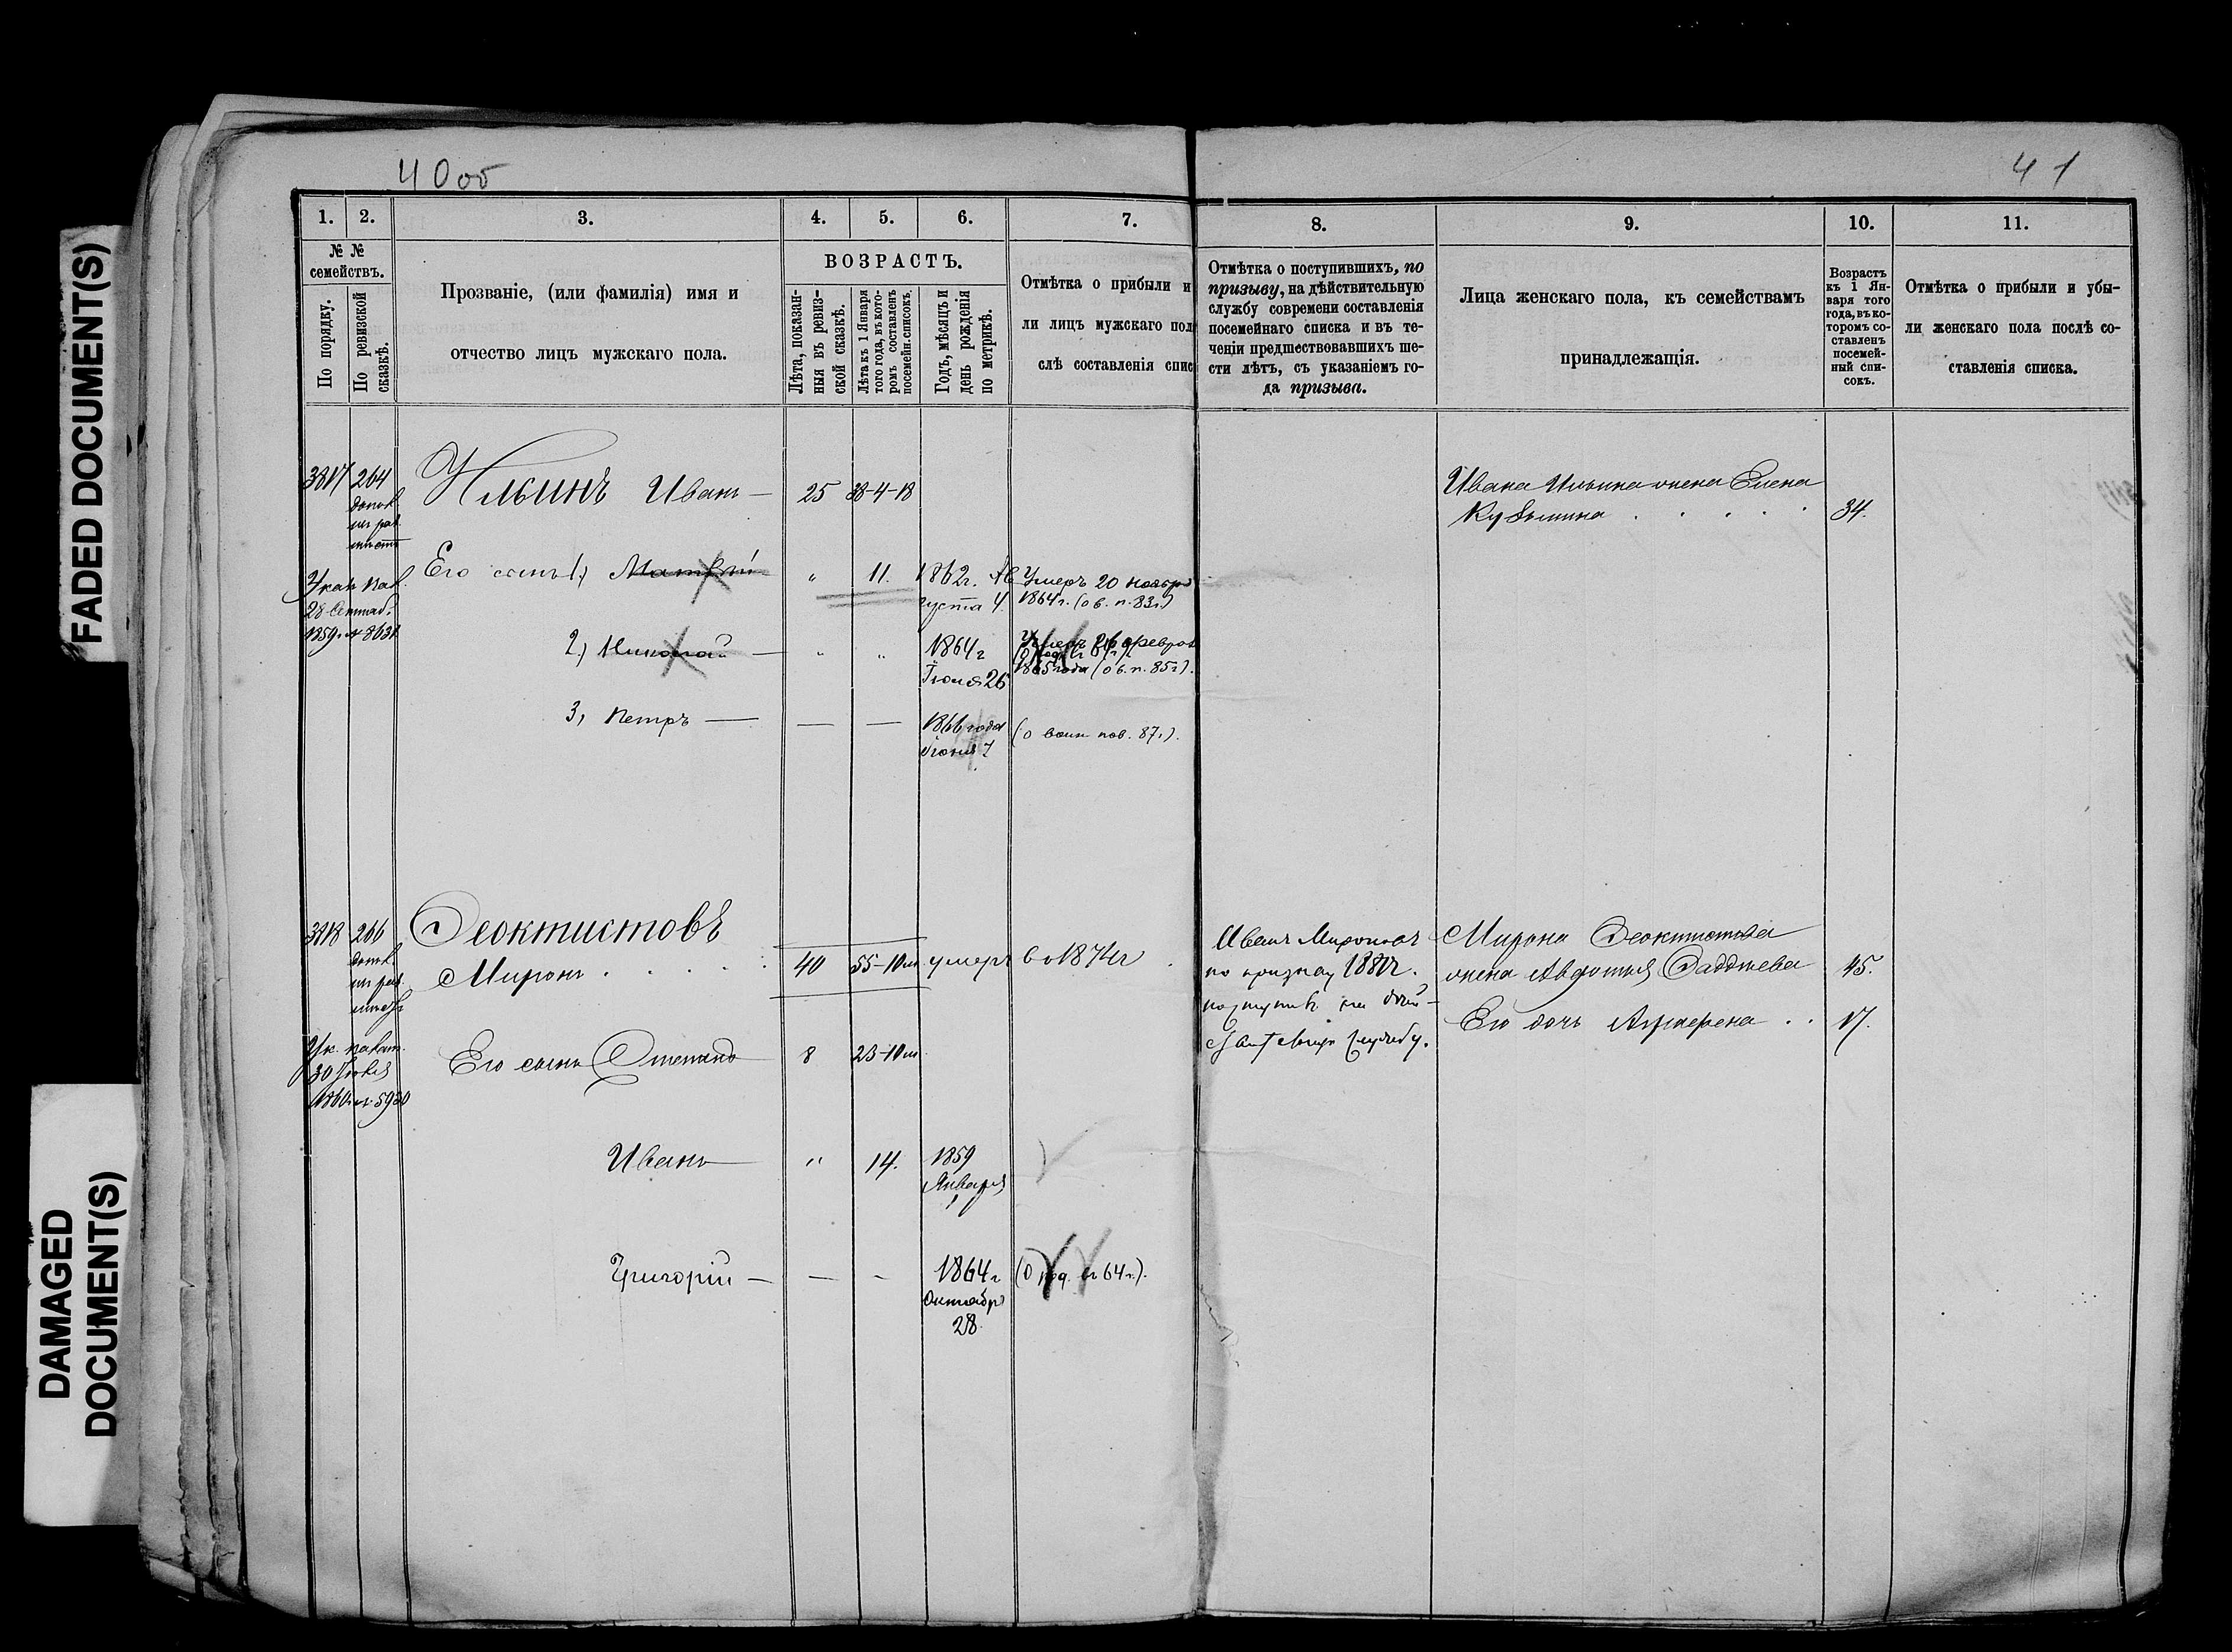 FADED DOCUMENT(S)
DAMAGED
DOCUMENT(S)
40об
41
1.
2.
3.
4.
5.
6.
7.
8.
9.
10.
11.
№ №
семействъ.
По порядку.
По ревизской
сказкѣ.
Прозваніе, (или фамилія) имя и
отчество лицъ мужскаго пола.
ВОЗРАСТЪ.
Лѣта, показан-
ныя въ ревиз-
ской сказкѣ.
Лѣта къ 1 Января
того года, въ кото-
ромъ составленъ
посемейн. списокъ.
Годъ, мѣсяцъ и
день рожденія
по метрикѣ.
Отмѣтка о прибыли и
ли лицъ мужскаго пол
слѣ составленія спис
Отмѣтка о поступившихъ, по
призыву, на дѣйствительную
службу современи составленія
посемейнаго списка и въ те-
ченіи предшествовавшихъ ше-
сти лѣтъ, съ указаніемъ го-
да призыва.
Лица женскаго пола, къ семействамъ
принадлежащія.
Возрастъ
къ 1 Ян-
варя того
года, въ ко-
торомъ со-
ставленъ
посемей-
ный спи-
сокъ.
Отмѣтка о прибыли и убы-
ли женскаго пола послѣ со-
ставленія списка.
3817 264
Ильинъ Иванъ — 25 38-4-18
Ивана Ильина жена Елена
Кузьмина . . . . . 34.
Указ. пал.
28 Сентяб.
1859 г. № 8631
Его сынъ 1) Матвѣй " 11. 1862г. Ав
густа 4
Умеръ 20 ноября
1864 г. (о в. п. 83 г.)
2) Николай — " " 1864 г
Іюля 26
Умеръ 26 феврал
1865 года (о в. п. 85 г).
3, Петръ — — — 1866 года
Іюня
(о воин. пов. 87 г).
3818 266
Феоктистовъ
Миронъ . . . . . 40 55-10 м умеръ во 1874 г.
Иванъ Миронов
по призыву 1880 г.
поступилъ на дѣй-
службу.
Мирона Феоктистова
жена Авдотья Фаддѣева 45.
Его дочь Аграфена . . 17.
Ук. палат.
30 Іюля
1860 г. № 5930
Его сынъ Степанъ 8 23-10 м
Иванъ — " 14. 1859
Января
1
Григорій — — — 1864 г
Октябр
28
64 г.).